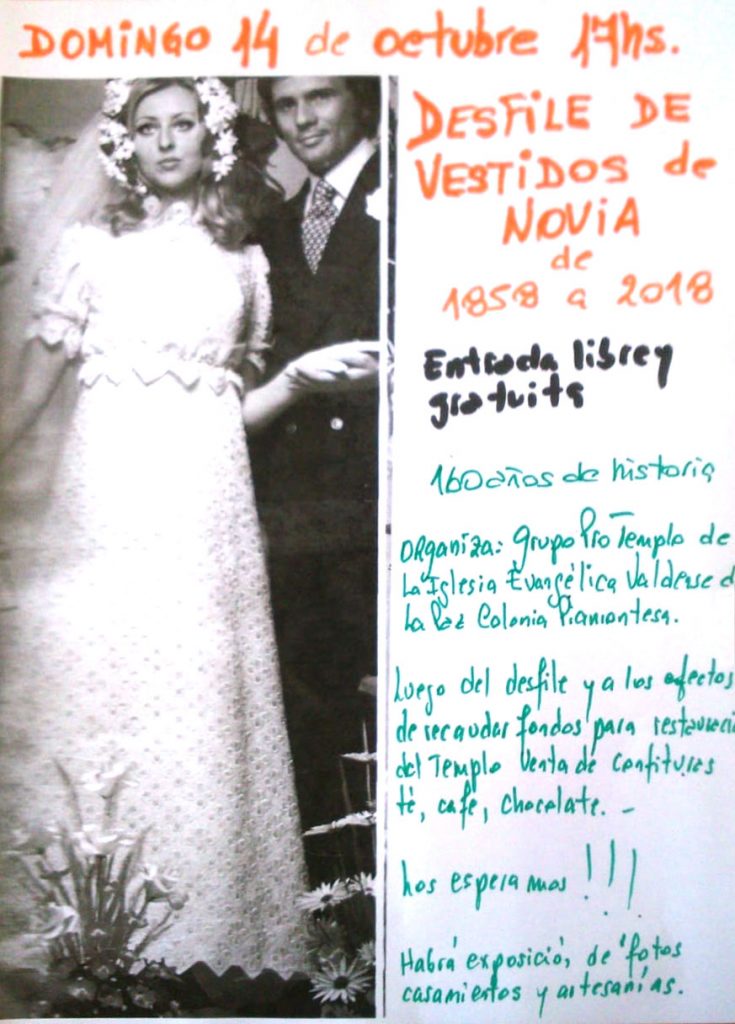 DOMINGO 14 de octubre 17hs.
DESFILE DE
VESTIDOS de
NOVIA
de
1858 a 2018
Entrada libre y
gratuita
160 años de historia
Organiza: Grupo Pro Templo de
La Iglesia Evangélica Valdense d
La Paz Colonia Piamontesa.
Luego del desfile y a los efectos
de recaudar fondos para restauraci
del Templo Venta de Confituras
té, café, chocolate. -
Los esperamos !!!
Habrá exposició, de "fotos
casamientos y artesanías.